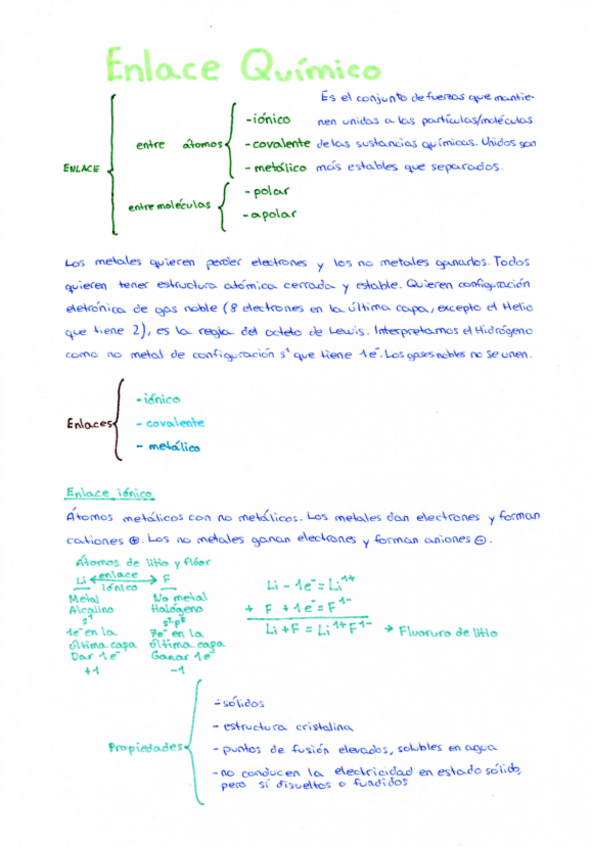 Enlace Químico
Es el conjunto de fuerzas que mantie-
nen unidas a las partículas/moléculas
de las sustancias químicas. Unidos son
más estables que separados.
ENLACE
entre átomos
-iónico
-covalente
-metálico
entre moléculas
-polar
-apolar
Los metales quieren perder electrones y los no metales ganarlos. Todos
quieren tener estructura atómica cerrada y estable. Quieren configuración
eletrónica de gas noble (8 electrones en la última capa, excepto el Helio
que tiene 2), es la regla del octeto de Lewis. Interpretamos el Hidrógeno
como no metal de configuración s¹ que tiene 1e⁻. Los gases nobles no se unen.
Enlaces
-iónico
-covalente
-metálico
Enlace iónico
Átomos metálicos con no metálicos. Los metales dan electrones y forman
cationes ⊕. Los no metales ganan electrones y forman aniones ⊖.
Átomos de litio y flúor
Li ←enlace→ F
iónico
Metal No metal
Alcalino Halógeno
s¹ s²p⁵
1e⁻ en la 7e⁻ en la
última capa última capa
Dar 1e⁻ Ganar 1e⁻
+1 -1
Li - 1e⁻ = Li¹⁺
+ F + 1e⁻ = F¹⁻
Li + F = Li¹⁺F¹⁻ → Fluoruro de litio
Propiedades
-sólidos
-estructura cristalina
-puntos de fusión elevados, solubles en agua
-no conducen la electricidad en estado sólido,
pero sí disueltos o fundidos